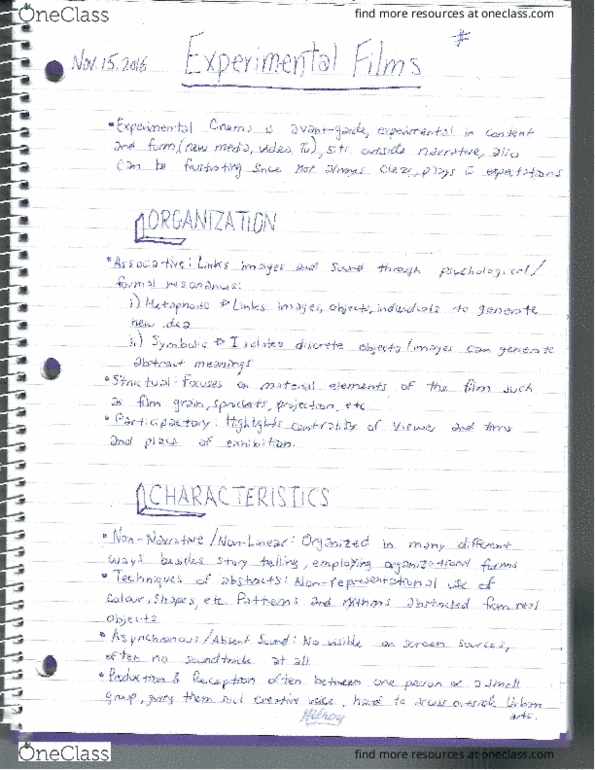 OneClass
find more resources at oneclass.com
#
Nov. 15. 2016 Experimental Films
• Experimental Cinema is avant-garde, experimental in content
and form, (new media, video, outside narrative, also
can be frustrating since not always clear, plays expectations
ORGANIZATION
• Associative: Links images and sound through psychological/
formal resonances:
i) Metaphoric → Links images, objects, individuals to generate
new idea
ii) Symbolic → Isolates discrete objects/images can generate
abstract meanings
• Structual: Focuses on material elements of the film such
as film grain, sprockets, projection, etc
• Participactory: Highlights centrality of viewer and time
and place of exhibition.
CHARACTERISTICS
• Non-Narrative/Non-Linear: Organized in many different
ways besides story telling, employing organizational forms
• Techniques of abstracts: Non-representational use of
Colour, Shapes, etc. Patterns and rythms abstracted from real
objects
• Asynchronous/Absent Sound: No visible on screen sources,
often no soundtrack at all
• Production & Reception often between one person or a small
group, creative voice, hard to access outside Urban
arts.
Hilroy
OneClass
find more resources at oneclass.com